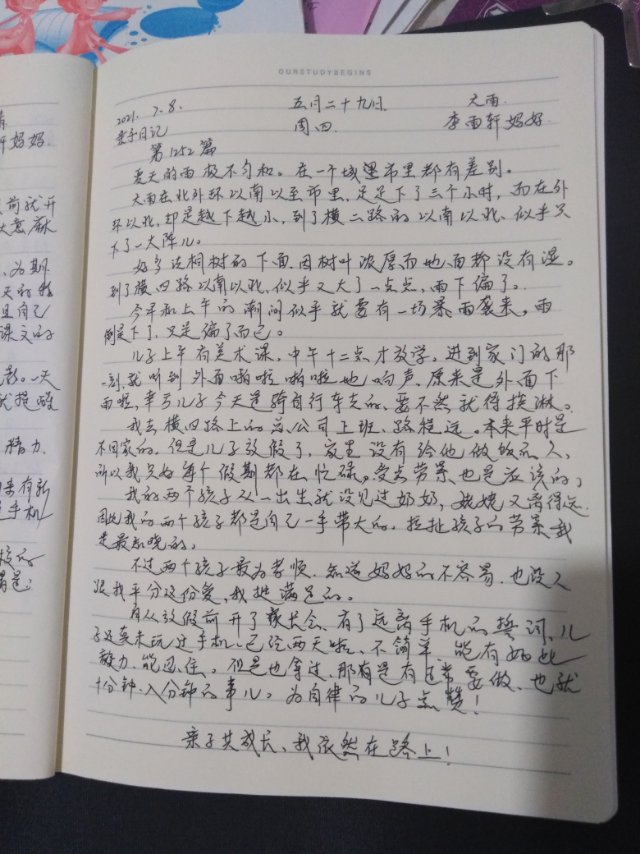 OURSTUDYBEGINS
2021. 7.8. 五月二十九日. 大雨.
亲子日记 周四. 李雨轩妈妈.
第1252篇
夏天的雨极不匀和。在一个城里市里都有差别。
大雨在北外环以南以至市里,足足下了三个小时,而在外
环以北,却是越下越小,到了横二路的以南以北、似乎又
下了一大阵儿。
好多法桐树的下面,因树叶浓厚而地面都没有湿。
到了横四路以南以北、似乎又大了一点点,雨下偏了。
今早和上午的潮闷似乎就要有一场暴雨袭来,雨
倒是下了,又是偏了而已。
儿子上午有美术课,中午十二点才放学。进到家门的那
一刻,就听到外面啪啦啪啦地响声、原来是外面下
雨啦,幸亏儿子今天是骑自行车去的、要不然就得挨淋。
我去横四路上的总公司上班、路程远。本来平时是
不回家的,但是儿子放假了,家里没有给他做饭的人、
所以我只好每个假期都在忙碌,受点劳累也是应该的,
我的两个孩子从一出生就没见过奶奶,姥姥又离得远.
因此我的两个孩子都是自己一手带大的。拉扯孩子的劳累我
是最知晓的。
不过两个孩子最为孝顺、知道妈妈的不容易、也没人
跟我平分这份爱,我挺满足的。
自从放假前开了家长会、有了远离手机的誓词、儿
子还真未玩过手机、已经两天啦、不简单 能有如此
毅力、能忍住。但是也拿过、那有是有正常要做、也就
十分钟、八分钟的事儿。为自律的儿子点赞!
亲子共成长、我依然在路上!